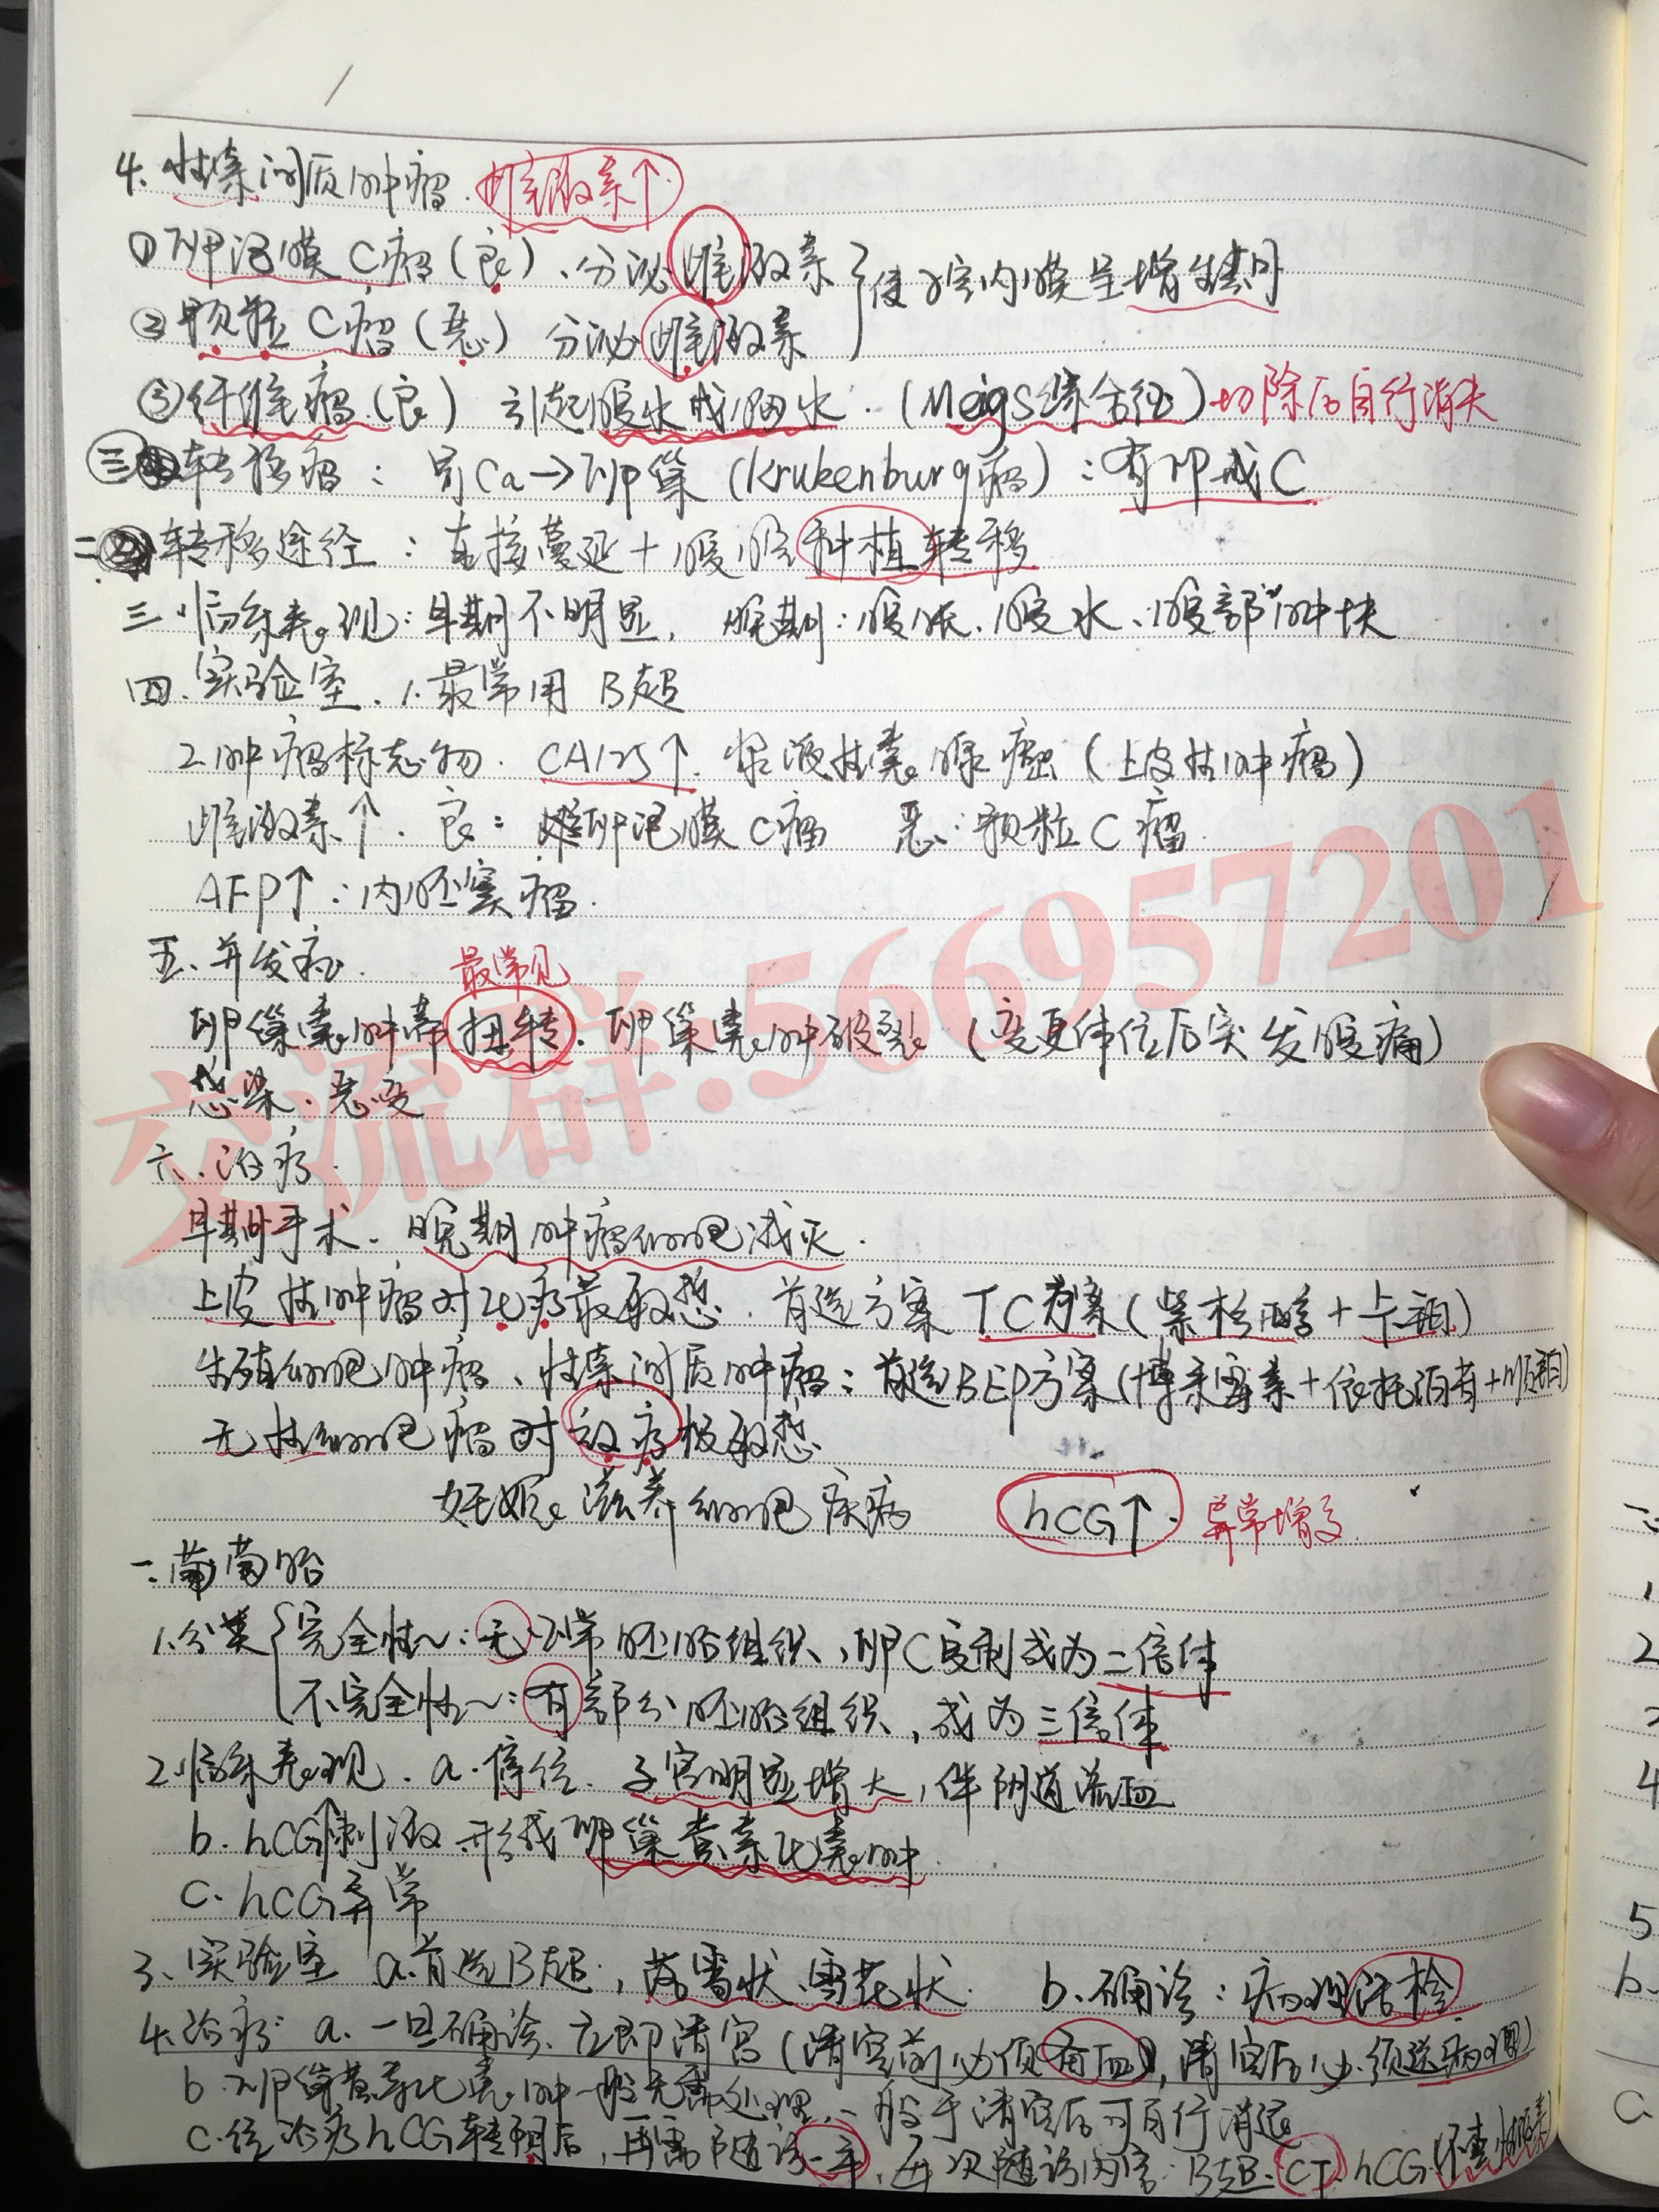 4. 性索间质肿瘤. 雌激素↑
①卵泡膜C瘤(良). 分泌雌激素 } 使宫内膜呈增生期
②颗粒C瘤(恶) 分泌雌激素
③纤维瘤(良) 引起腹水或胸水. (Meigs综合征) 切除后自行消失
三 转移瘤: 胃Ca→卵巢 (Krukenburg瘤): 有印戒C
二 转移途经: 直接蔓延+腹腔种植转移
三.临床表现: 早期不明显, 晚期: 腹胀.腹水、腹部肿块
四.实验室. 1.最常用 B超
2.肿瘤标志物. CA125↑. 浆液性囊腺癌 (上皮性肿瘤)
雌激素↑. 良: 卵泡膜C瘤 恶: 颗粒C瘤.
AFP↑: 内胚窦瘤.
五.并发症. 最常见
卵巢囊肿蒂扭转. 卵巢囊肿破裂 (变更体位后突发腹痛)
感染、恶变
交流群.566957201
六.治疗.
早期手术. 晚期肿瘤细胞减灭.
上皮性肿瘤对化疗最敏感. 首选方案 TC方案(紫杉醇+卡铂)
生殖细胞肿瘤、性索间质肿瘤: 首选BEP方案(博来霉素+依托泊苷+顺铂)
无性细胞瘤对放疗极敏感
妊娠滋养细胞疾病 hCG↑. 异常增多
一.葡萄胎
1.分类{完全性~: 无正常胚胎组织、卵C复制成为二倍体
不完全性~: 有部分胚胎组织, 成为三倍体
2.临床表现. a.停经. 子宫明显增大, 伴阴道流血
b. hCG↑刺激 形成卵巢黄素化囊肿.
c. hCG异常
3、实验室 a.首选B超., 落雪状.雪花状. b.确诊: 病理活检
4.治疗 a.一旦确诊.立即清宫 (清宫前必须备血), 清宫后必须送病理
b.卵巢黄素化囊肿一般无需处理, 一般于清宫后可自行消退
c.经治疗hCG转阴后, 再需随访一年, 每次随访内容: B超.CT.hCG.(不查雌激素)